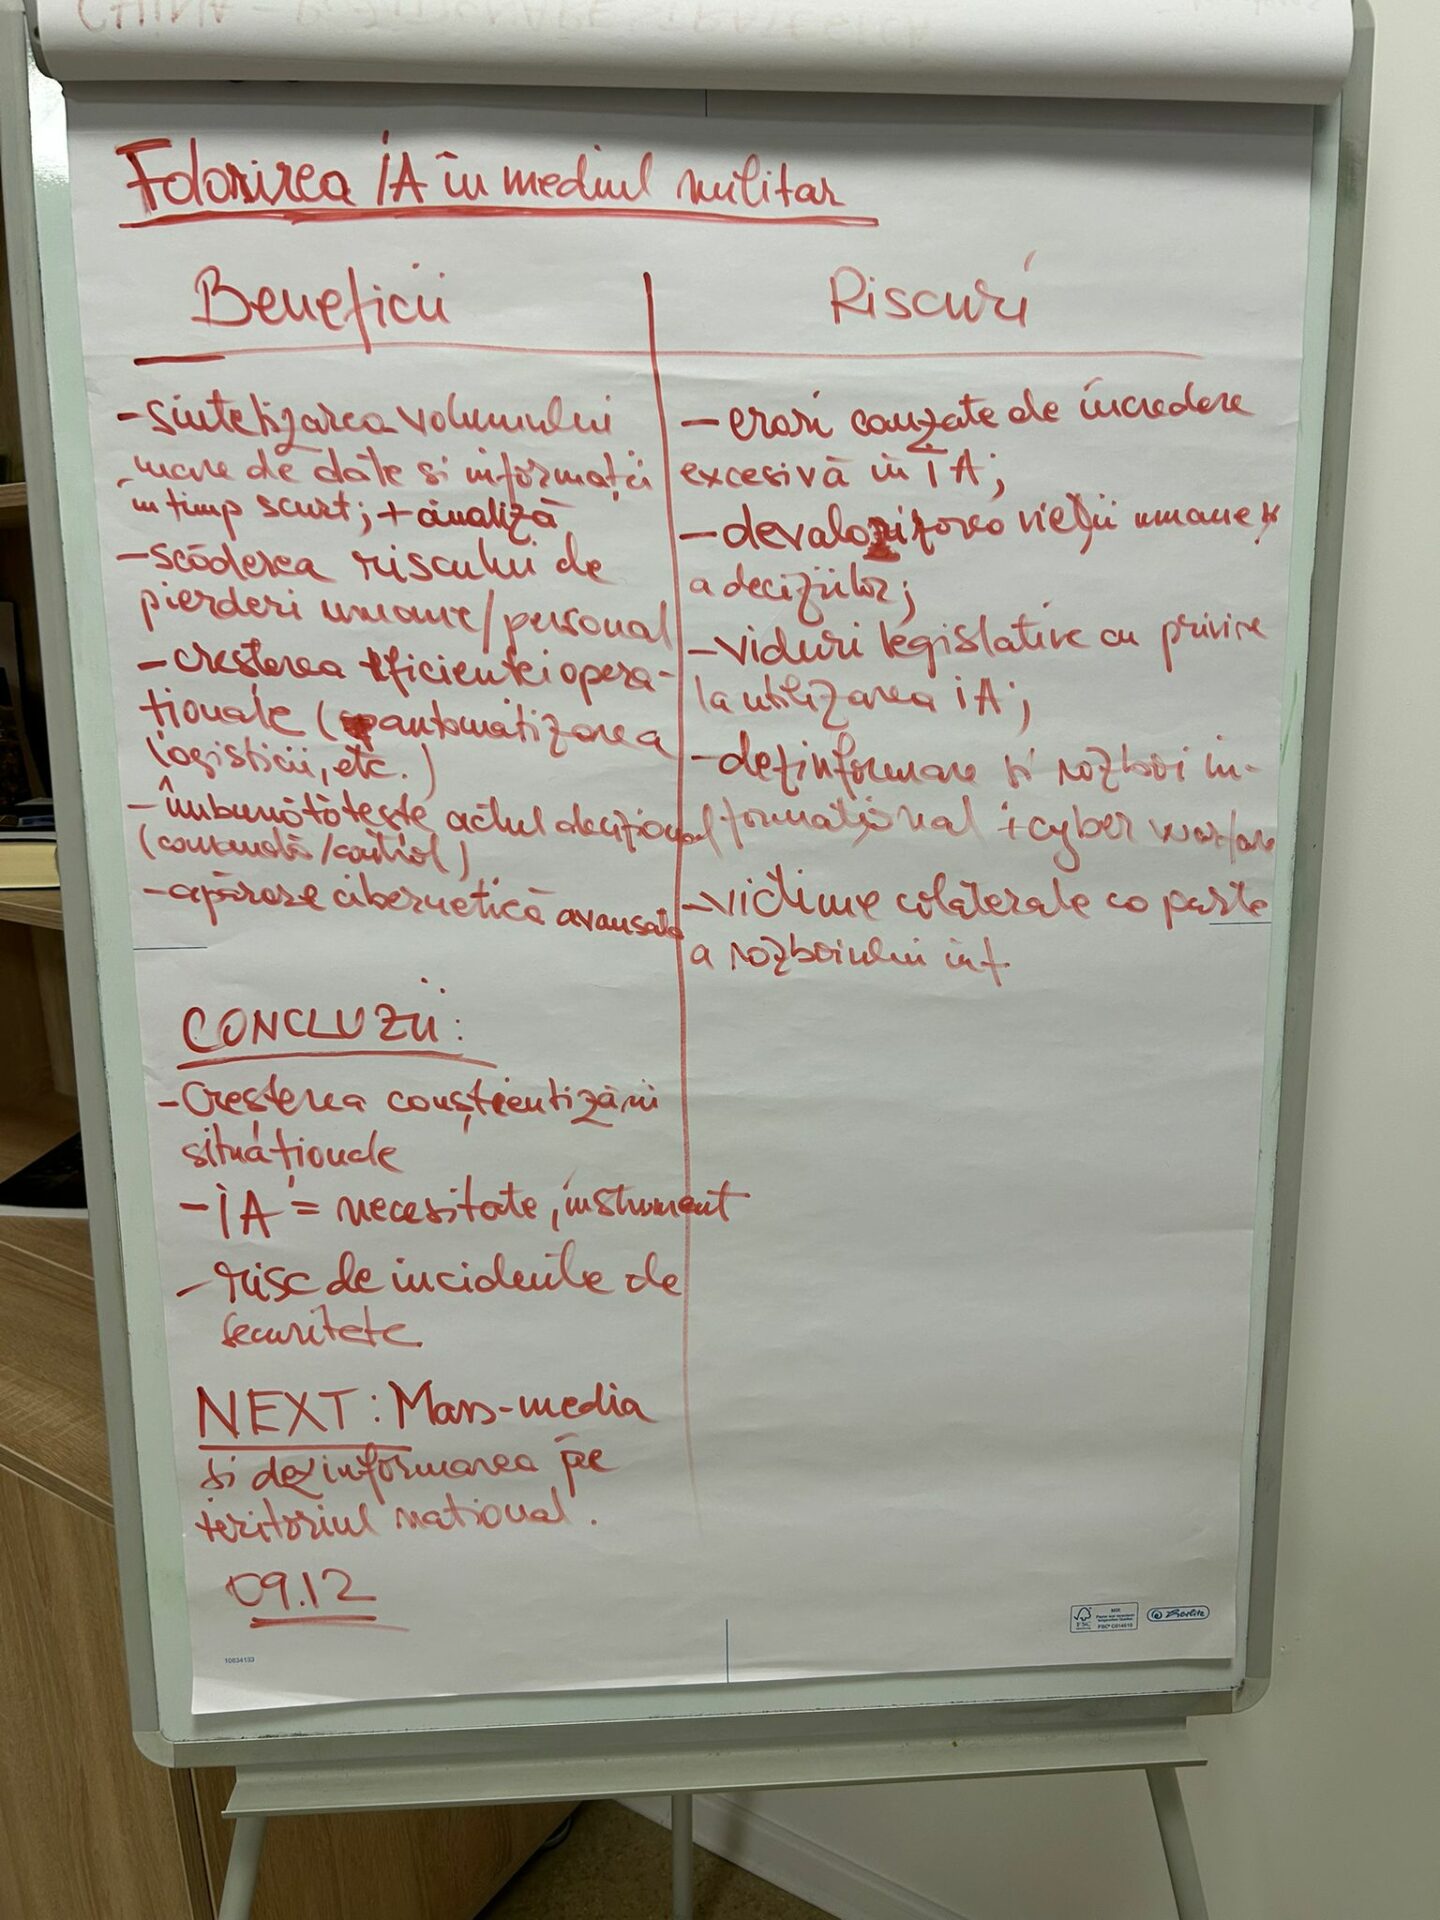 Folosirea IA în mediul militar
Beneficii
- sintetizarea volumului
mare de date si informații
în timp scurt; + analiză
- scăderea riscului de
pierderi umane/personal
- cresterea eficientei opera-
ționale (automatizarea
logisticii, etc.)
- îmbunătățește actul decizional
(comandă/control)
- apărare cibernetică avansată
Riscuri
- erori cauzate de încredere
excesivă în IA;
- devalorizarea vieții umane și
a deciziilor;
- viduri legislative cu privire
la utilizarea IA;
- dezinformare și război in-
formațional + cyber warfare
- victime colaterale ca parte
a războiului inf.
CONCLUZII:
- Cresterea conștientizării
situaționale
- IA = necesitate, instrument
- risc de incidente de
securitate
NEXT: Mass-media
și dezinformarea pe
teritoriul national.
09.12
10634193
FSC
MIX
FSC® C014618
Berlitz